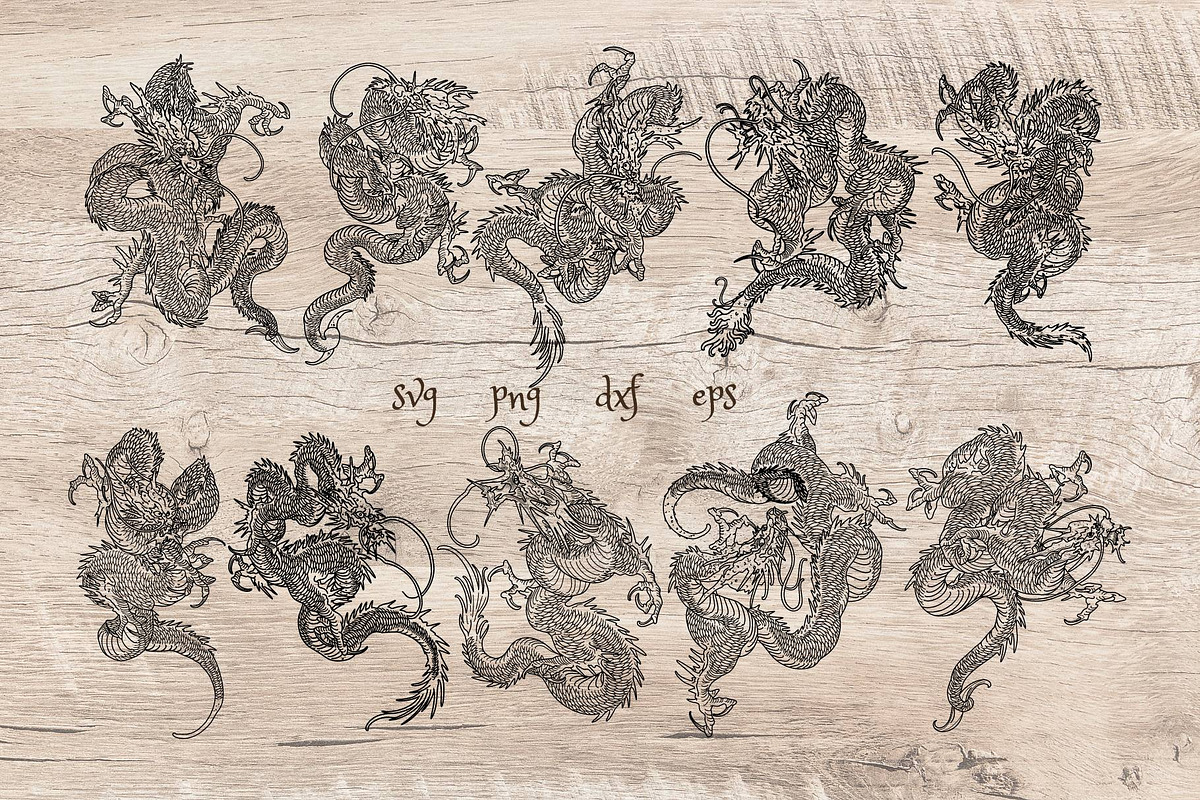 svg png dxf eps